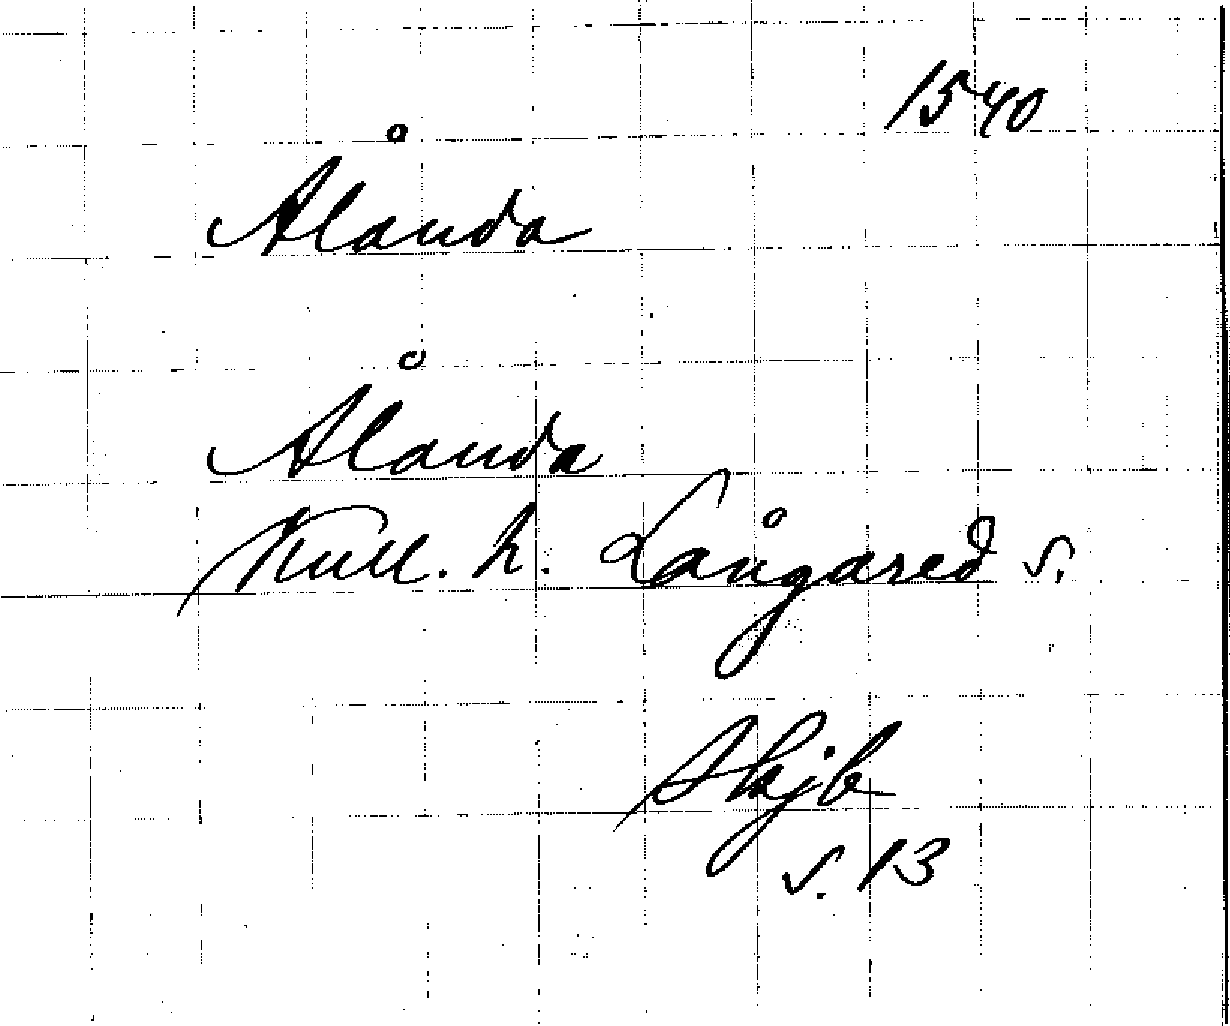 1540
Ålanda
Ålanda
Kull. h. Långared s.
Skjb
s. 13